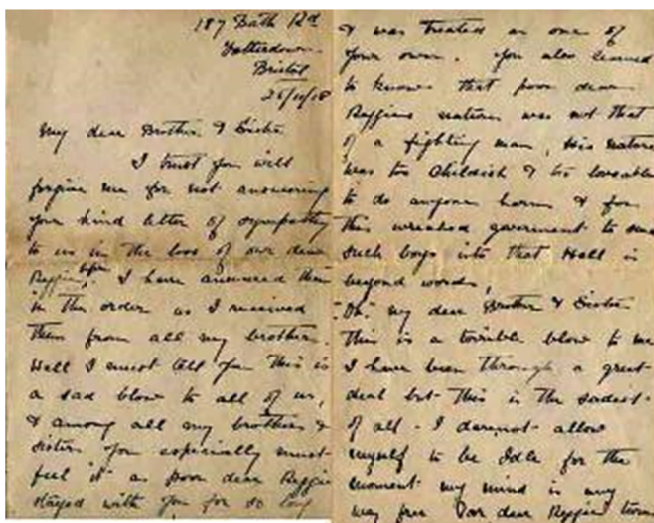 187 Bath Rd
Totterdown
Bristol
25/11/18
My dear Brother & Sister
I trust you will
forgive me for not answering
your kind letter of sympathy
to us in the loss of our dear
Reggie, I have answered them
in the order as I received
them from all my brothers.
Well I must tell you this is
a sad blow to all of us,
& among all my brothers &
sisters you especially must
feel it as poor dear Reggie
stayed with you for so long
& was treated as one of
your own. You also learned
to know that poor dear
Reggies nature was not that
of a fighting man, His nature
was too childish & too loveable
to do anyone harm & for
this wretched goverment to send
such boys into that Hell is
beyond words,
Oh. my dear Brother & Sister
this is a terrible blow to me
I have been through a great
deal but this is the sadest
of all - I darenot allow
myself to be Idle for the
moment my mind is
way free Poor dear Reggie